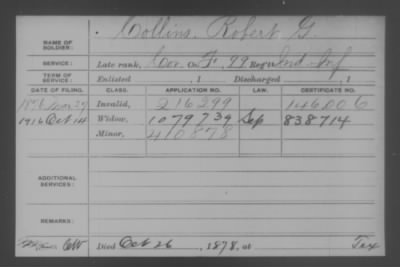 NAME OF SOLDIER: Collins, Robert G.
SERVICE: Late rank, Cor. Co. F, 88 Reg't Ind. Inf
TERM OF SERVICE: Enlisted , 1 Discharged , 1
DATE OF FILING. CLASS. APPLICATION NO. LAW. CERTIFICATE NO.
1876 Nov 29 Invalid, 216299 146006
1916 Oct 14 Widow, 1079739 Sep 838714
Minor, 410878
ADDITIONAL SERVICES:
REMARKS:
CW Died Oct 26, 1878, at Tex